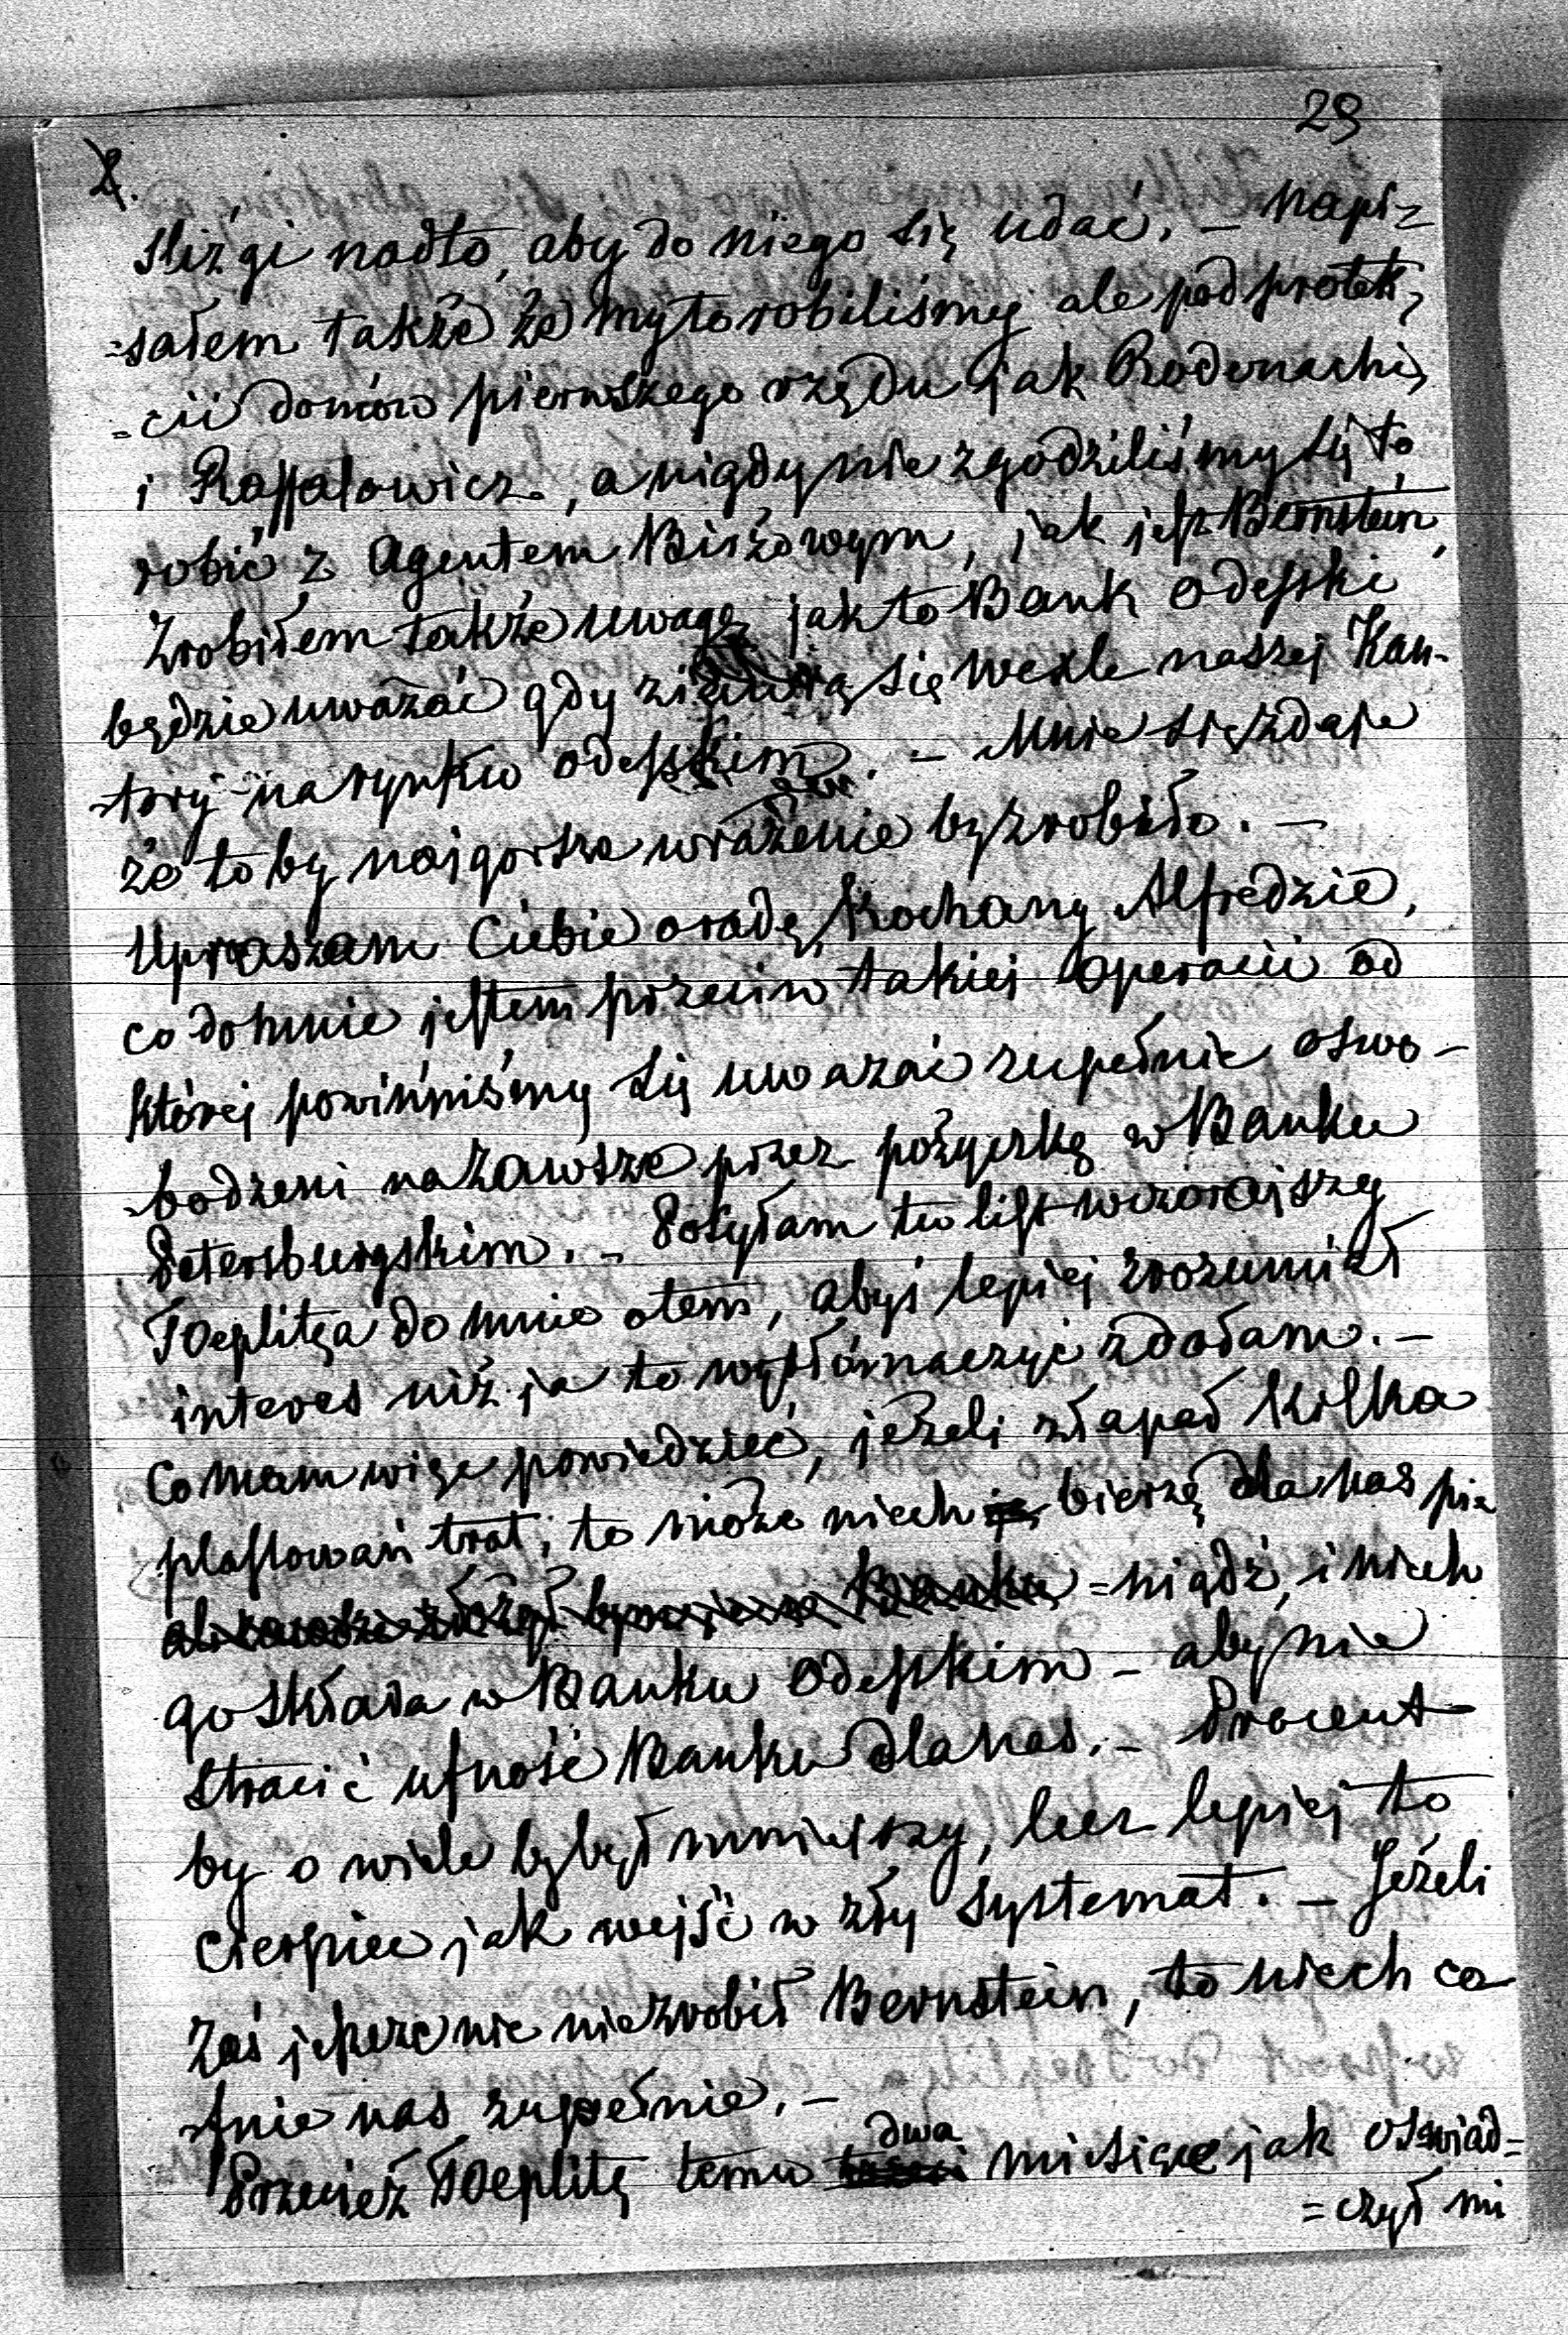 29
2.
sliżgi nadto, aby do niego się udać. – Napi=
=sałem także że my to robiliśmy ale pod protek=
=cii domów pierwszego rzędu jak Rodocnachi,
i Raffałowicz, a nigdy nie zgodziliśmy się to
robić z Agentem Birżowym, jak jest Bernstein,
Zrobiłem także uwagę jak to Bank odesski
będzie uważać gdy zjawią się wexle naszej Kan-
-tory na rynku odesskim. – Mnie się zdaje
że to by najgorsze wrażenie by zrobiło. –
Upraszam Ciebie o radę, Kochany Alfredzie,
co do mnie jestem przeciw takiej operacii od
której powinniśmy się uważać zupełnie oswo-
-bodzeni na zawsze przez pożyczkę w Banku
Petersburgskim. – Posyłam tu list wczorajszy
Toeplitza do mnie o tem, abyś lepiej zrozumiał
interes niż ja to wytłómaczyć zdołam. –
Co mam więc powiedzieć, jeżeli złapał kilka
plassowań trat, to może niech bierzę dla nas pie
=niądż, i niech
go składa w Banku Odesskim – aby nie
stracić ufność Banku dla nas. – Procent
by o wiele by był mniejszy, lecz lepiej to
cierpieć jak wejść w zły systemat. – Jeżeli
zaś jeszcze nic nie zrobił Bernstein, to niech co
-fnie nas zupełnie. –
Przecież Toeplitz temu dwa miesięce jak oswiad=
=czył mi